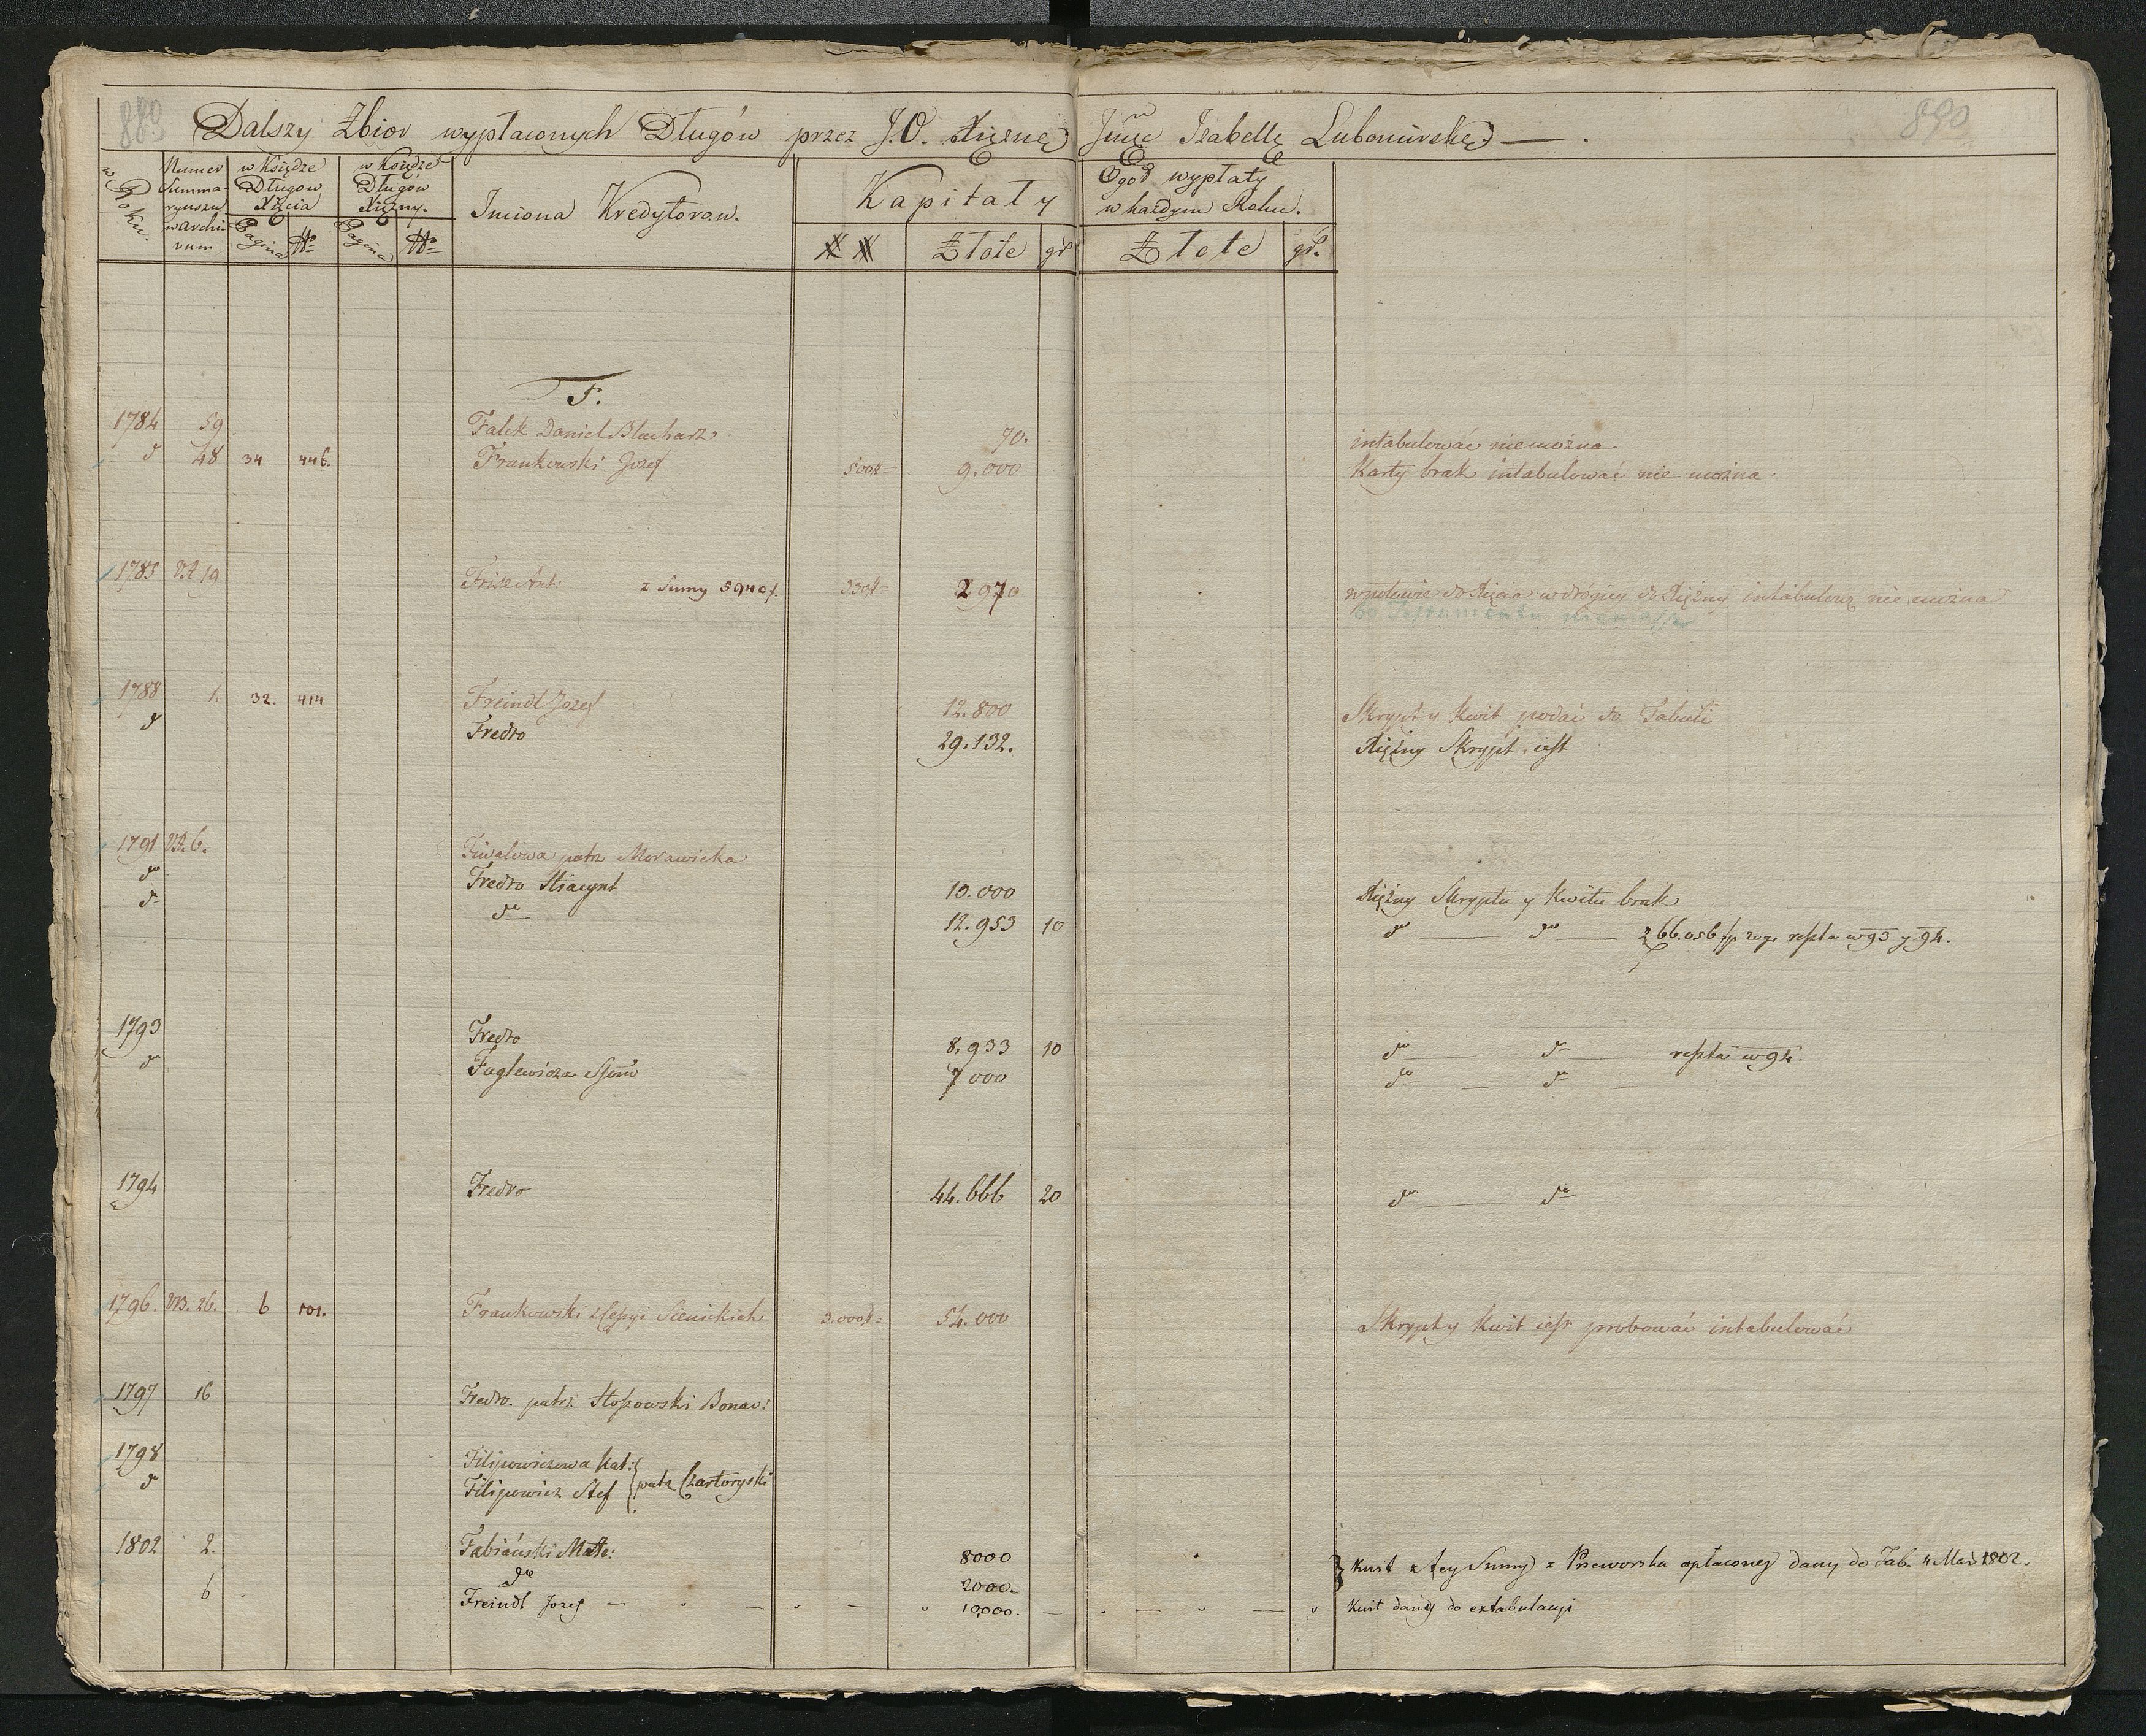 880 890
Dalszy Zbior wypłaconych Długów przez J.O. Xiężnę Jmć Izabellę Lubomirską — .
w Roku. Numer Summaryuszu w archivum w Księdze Długow Xźcia w Księdze Długów Xiężny. Imiona Kredytorow. Kapitały Ogoł wypłaty w każdym Roku.
Pagina No Pagina No XX Złote gr. Złote gr.
F.
1784 59 Falck Daniel Blacharz 70. intabulować nie można
do 48 34 446. Frankowski Jozef 500 9.000 Karty brak intabulować nie można.
1785 19 Frise Ant: z Sumy 5940 f. 330 2970 w połowie do Xięcia w drógiey do Xiężny intabulow nie można
bo Instrumentu niemasz
1788 1. 32. 414 Freindl Jozef 12.800 Skrypt y Kwit podać do Tabuli
do Fredro 29.132. Xiężny Skrypt iest
1791 6. patrz Morawicka
do Fredro Hiacynt 10.000 Xiężny Skryptu y Kwitu brak
do do 12.953 10 do — do — z 66.056 20 reszta w 93 y 94.
1793 Fredro 8.933 10 do — do — reszta w 94.
do Fuglewicza 7000 do — do —
1794 Fredro 44.666 20 do — do
1796. 26. 6 101. Frankowski Siemickich 3.000 54.000 Skrypt y Kwit iest probować intabulować
1797 16 Fredro. patrz Bonav:
1798 Filipowiczowa Kat:
do Filipowicz Stef } patrz Czartoryski
1802 2. Fabiański Mate: 8000 } Kwit z tey Sumy z Przeworska opłaconey dany do Tab. 4 Maii 1802.
do 2000
6 Freindl Jozef — 10,000. — Kwit dany do extabulacyi